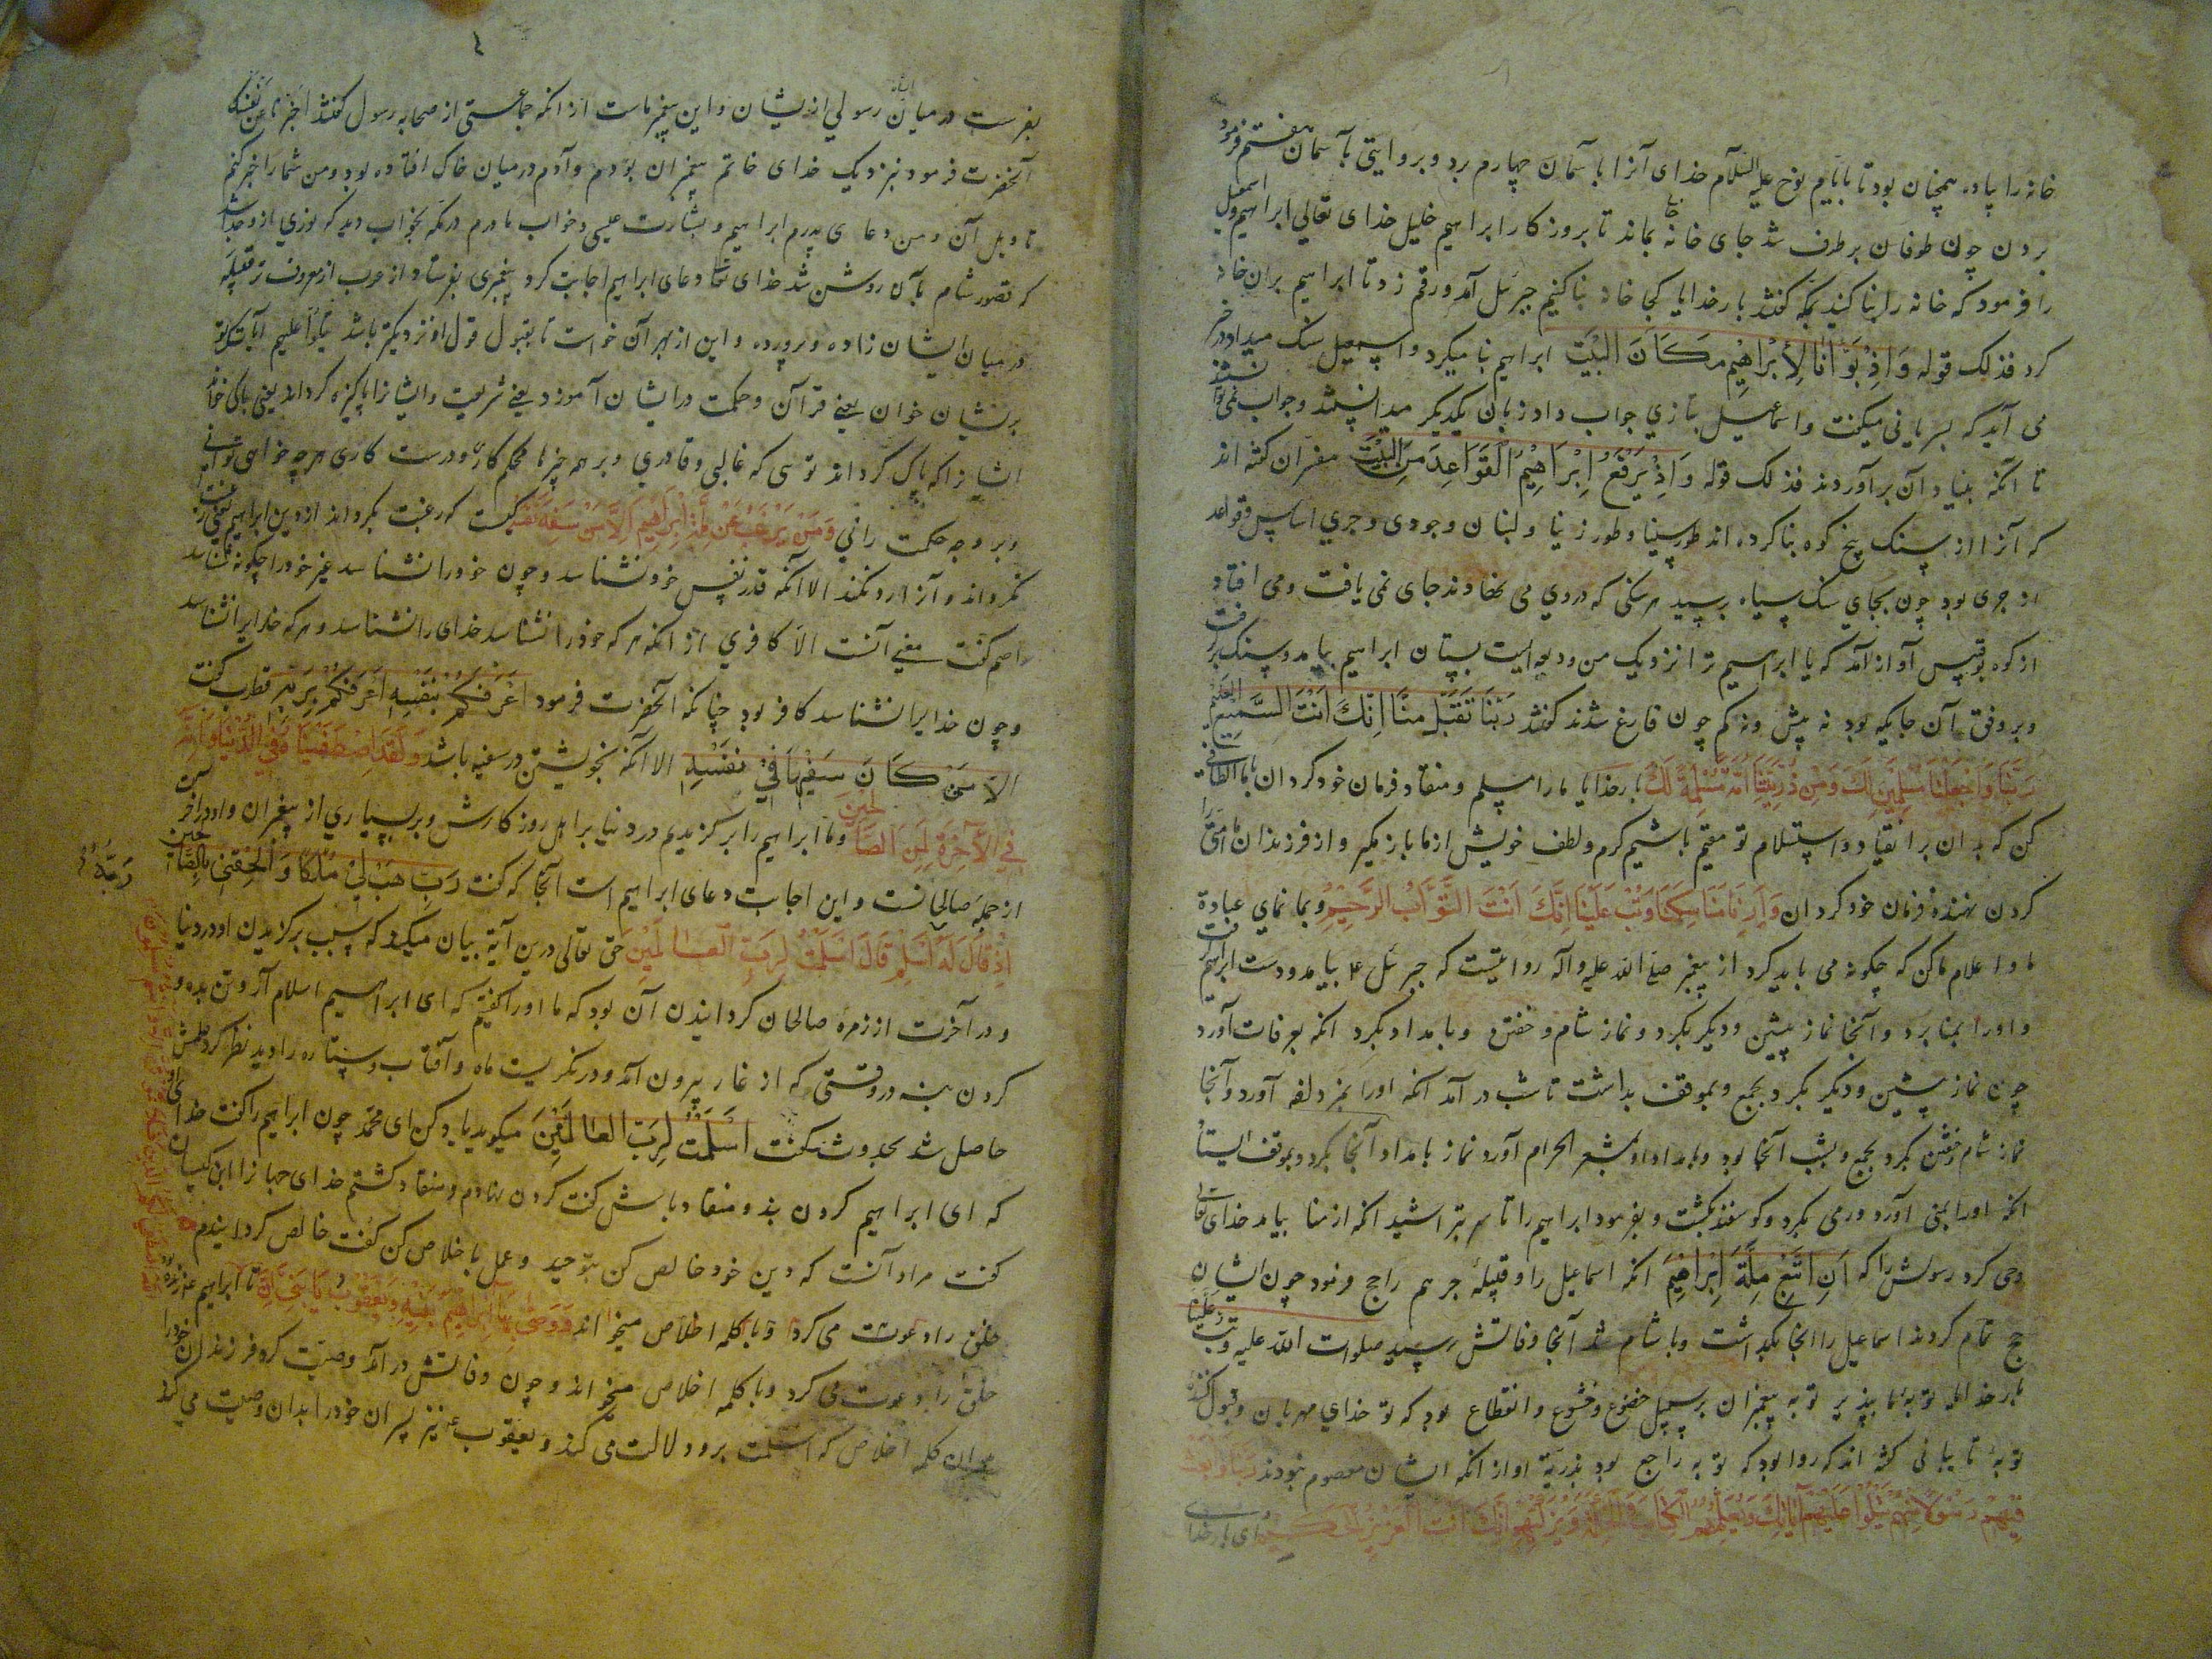 خانه را پیاده همچنان بود تا بایام نوح علیه السلام خدای آنرا بآسمان چهارم برد و بروایتی بآسمان هفتم فرمود
بردن چون طوفان برطرف شد جای خانه بماند تا بروزکار ابراهیم خلیل خدای تعالی ابراهیم و اسمعیل
را فرمود که خانه را بنا کنید بمکه کفتند بار خدایا کجا خانه بنا کنیم جبرئیل آمد و رقم زد تا ابراهیم بران خانه
کرد فذلک قوله وَاِذْ بَوَّأنَا لِأبْرَاهِیمَ مَکَانَ البَیْتَ ابراهیم بنا میکرد و اسمعیل سنک میداد در خبر
می آید که سریانی میکفت و اسماعیل بتازی جواب داد زبان یکدیکر میدانستند و جواب نمی توانستند
تا آنکه بنیاد آن برآوردند فذلک قوله وَاِذْ یَرْفَعُ اِبْرَاهِیمُ الْقَوَاعِدَ مِنَ البَیْتِ مفسران کفته اند
که آنرا از سنک پنج کوه بنا کرده اند طور سینا و طور زیتا و لبنان و جودی و حری اساس و قواعد
از حری بود چون بجای سنک سیاه رسید هر سنکی که در وی می نهاوند جای نمی یافت و می افتاد
از کوه بوقبیس آواز آمد که یا ابراهیم ترا نزدیک من ودیعه ایست بستان ابراهیم بیامد و سنک برکرفت
و بر وفق آن جایکه بود نه پیش و نه کم چون فارغ شدند کفتند رَبَّنَا تَقَبَّلْ مِنَّا اِنَّکَ اَنْتَ السَّمِیعُ العَلِیمُ
رَبَّنَا وَاجْعَلْنَا مُسْلِمَیْنِ لَکَ وَمِنْ ذُرِّیَّتِنَا اُمَّةً مُسْلِمَةً لَکَ بار خدایا ما را مسلم و منقاد فرمان خود کردان با ما الطافی
کن که بدان بر انقیاد و استسلام تو مقیم باشیم کرم و لطف خویش از ما باز مکیر و از فرزندان ما امتی را
کردن نهنده فرمان خود کردان وَاَرِنَا مَنَاسِکَنَا وَتُبْ عَلَیْنَا اِنَّکَ اَنْتَ التَّوَّابُ الرَّحِیمُ و بما نمای عبادة
ما و اعلام ما کن که چکونه می باید کرد از پیغمبر صلی الله علیه و آله روایتست که جبرئل ۴ بیامد و دست ابراهیم کرفت
و او را بمنا برد و آنجا نماز پیشین و دیکر بکرد و نماز شام و خفتن و بامداد بکرد انکه بعرفات آورد
چون نماز پیشین و دیکر بکرد بجمع و بموقف بداشت تا شب در آمد انکه او را بمزدلفه آورد و آنجا
نماز شام و خفتن بکرد بجمع و بشب آنجا بود و بامداد او بمشعر الحرام آورد نماز بامداد آنجا بکرد و بموقف ایستاد
انکه او را بمنی آورد و رمی بکرد و کوسفند بکشت و بفرمود ابراهیم را تا سر بتراشید انکه از منا بیامد خدای تعالی
وحی کرد رسولش را که اَنِ اتَّبِعْ مِلَّةَ اِبْرَاهِیمَ انکه اسماعیل را و قبیلهٔ جرهم را حج فرمود چون ایشان
حج تمام کردند اسماعیل را آنجا بکذاشت و با شام شد آنجا وفاتش رسید صلوات الله علیه وَتُبْ عَلَیْنَا
بار خدایا توبه ما بپذیر توبه پیغمبران بر سبیل خضوع و خشوع و انقطاع بود که تو خدای مهربان و قبول کننده
توبه تایبانی کفته اند که روا بود که توبه راجع بود بذریّة او از انکه ایشان معصوم نبودند رَبَّنَا وَابْعَثْ
فِیهِمْ رَسُولًا مِنْهُمْ یَتْلُوا عَلَیْهِمْ آیَاتِکَ وَیُعَلِّمُهُمُ الْکِتَابَ وَالْحِکْمَةَ وَیُزَکِّیهِمْ اِنَّکَ اَنْتَ الْعَزِیزُ الْحَکِیمُ ای بار خدای
٤
بفرست در میان ایشان رسولی از یشان و این پیغمبر ماست از انکه جماعتی از صحابه رسول کفتند اَخْبِرْنَا عَنْ نَفْسِکَ
آنحضرت فرمود بنزدیک خدای خاتم پیغمبران بودم و آدم در میان خاک افتاده بود و من شما را خبر کنم
تاویل آن و من دعای پدرم ابراهیم و بشارت عیسی و خواب مادرم در مکه بخواب دید که نوری از و جدا شد
که قصور شام بآن روشن شد خدای تعا دعای ابراهیم اجابت کرد پیغمبری بفرستاد از عرب از معروف تر قبیله
در میان ایشان زاده و پرورده و این از بهر آن خواست تا بقبول قول او نزدیکتر باشد یَتْلُوا علیهم آیاتک تو
بریشان خوان یعنی قرآن و حکمت در ایشان آموزد یعنی شریعت و ایشانرا پاکیزه کرداند یعنی بپاکی خواند
ایشانرا که پاک کرداند توئی که غالبی و قادری و بر همه چیزها محکم کار و درست کاری هر چه خواهی توانی
و بر وجه حکمت رانی وَمَنْ یَرْغَبُ عَنْ مِلَّةِ اِبْرَاهِیمَ اِلَّا مَنْ سَفِهَ نَفْسَهُ کیست که رغبت بکرداند از دین ابراهیم یعنی رغبت
نکرداند و آنرا رد نکند الا آنکه قدر نفس خود نشناسد و چون خود را نشناسد غیر خود را چکونه شناسد
اصم کفت معنی آنست الا کافری از انکه هر که خود را نشناسد خدای را نشناسد و هر که خدایرا نشناسد
و چون خدایرا نشناسد کافر بود چنانکه آنحضرت فرمود اَعْرَفُکُمْ بِنَفْسِهِ اَعْرَفُکُمْ بِرَبِّهِ قطرب کفت
الا مَنْ کَانَ سَفِیهًا فِی نَفْسِهِ الا انکه بخویشتن در سفیه باشد وَلَقَدِ اصْطَفَیْنَاهُ فِی الدُّنْیَا وَاِنَّهُ
فِی الْآخِرَةِ لَمِنَ الصَّالِحِینَ و ما ابراهیم را برکزیدیم در دنیا بر اهل روزکارش و بر بسیاری از پیغمبران و او در آخرت
از جمله صالحانست و این اجابت دعای ابراهیم است آنجا که کفت رَبِّ هَبْ لِی حُکْمًا وَاَلْحِقْنِی بِالصَّالِحِینَ
اِذْ قَالَ لَهُ رَبُّهُ اَسْلِمْ قَالَ اَسْلَمْتُ لِرَبِّ الْعَالَمِینَ حق تعالی درین آیة بیان میکرد که سبب برکزیدن او در دنیا
و در آخرت از زمره صالحان کردانیدن آن بود که ما او را کفتیم که ای ابراهیم اسلام آر و تن بده و
کردن بنه در وقتی که از غار بیرون آمد و در نکریست ماه و آفتاب و ستاره را دید نظر کرد علمش
حاصل شد بحدوثش کفت اَسْلَمْتُ لِرَبِّ العَالَمِینَ میکوید یاد کن ای محمد چون ابراهیم را کفت خدای
که ای ابراهیم کردن بنه و منقاد باش کفت کردن نهادم و منقاد کشتم خدای جهانرا ابن کیسان
کفت مراد آنست که دین خود خالص کن بتوحید و عمل باخلاص کن کفت خالص کردانیدم
خلق را دعوت می کرد و با کلمه اخلاص میخواند وَوَصَّی بِهَا اِبْرَاهِیمُ بَنِیهِ وَیَعْقُوبُ یَا بَنِیَّ اِنَّ تا ابراهیم ۴ زنده بود
خلق را دعوت می کرد و با کلمه اخلاص میخواند و چون وفاتش در آمد وصیّت کرد فرزندان خود را
بدان کلمه اخلاص که اسلمت برو دلالت می کند و یعقوب ۴ نیز پسران خود را بدان وصیت می کند